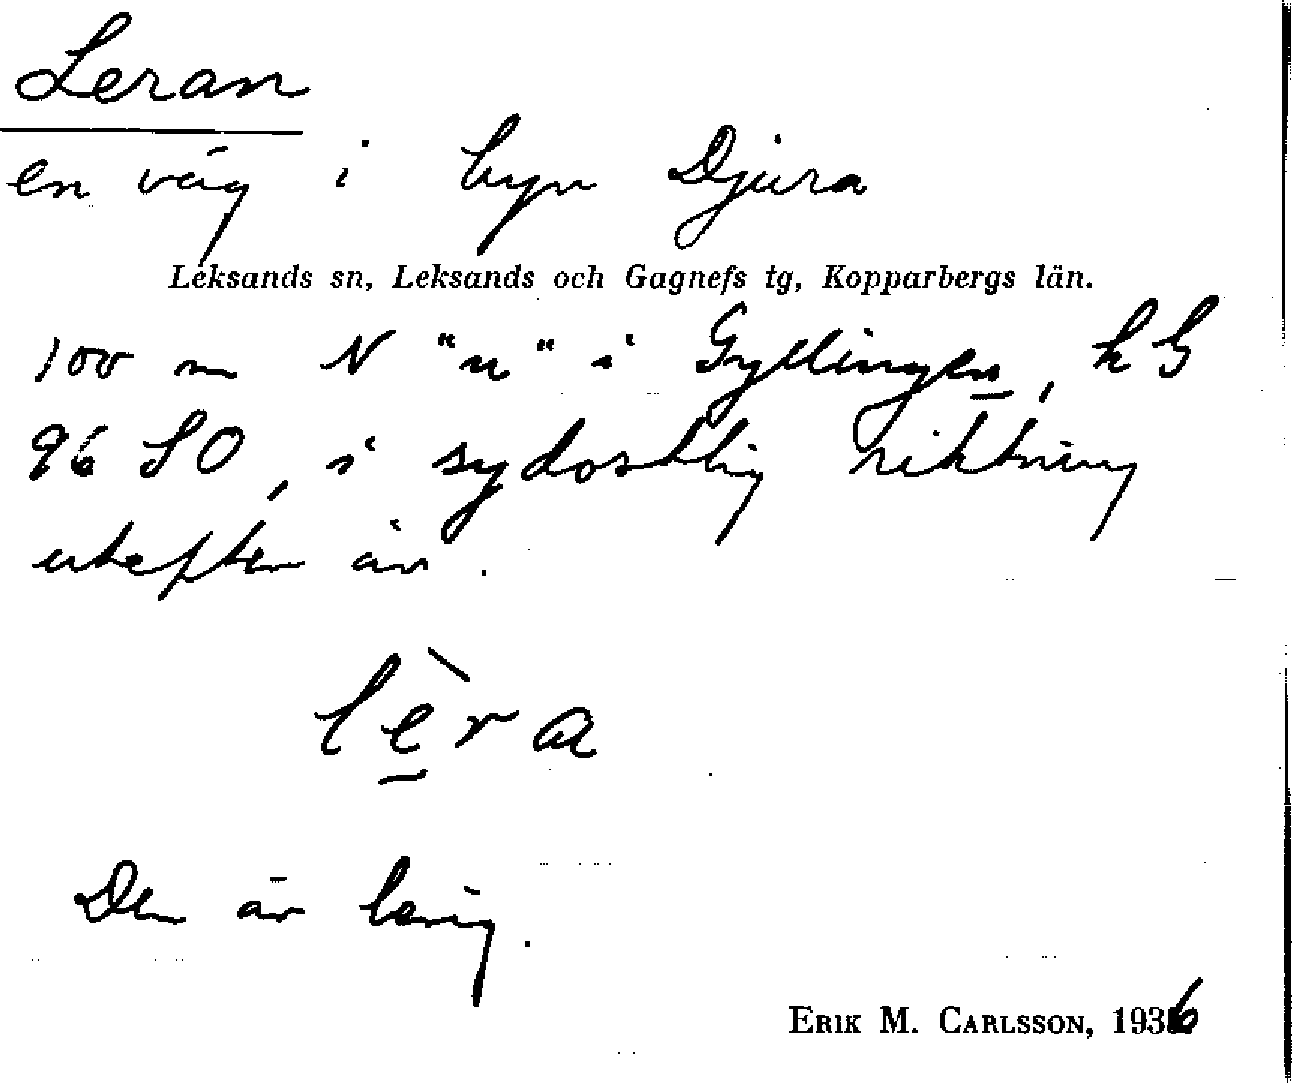 Leran
en väg i byn Djura
Leksands sn, Leksands och Gagnefs tg, Kopparbergs län.
100 m N "n" i Gyllingen, kb
96 SO, i sydostlig riktning
utefter ån.
lèra
Den är lerig.
ERIK M. CARLSSON, 1936